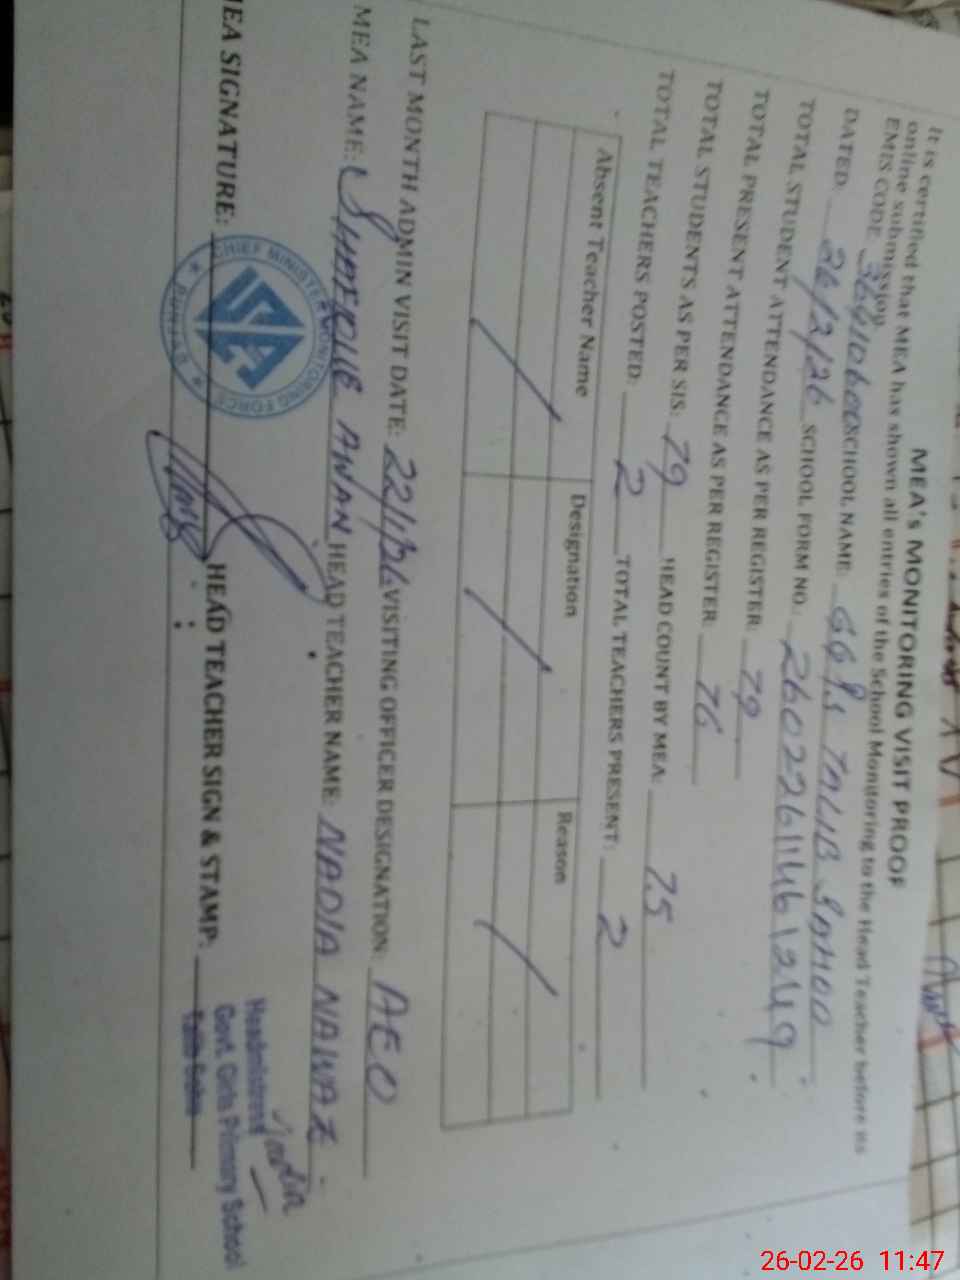 MEA's MONITORING VISIT PROOF
It is certified that MEA has shown all entries of the School Monitoring to the Head Teacher before its
online submission.
EMIS CODE SCHOOL NAME: GGPS TALIB SAHOO
DATED: 26/2/26 SCHOOL FORM NO.: 26022611461249
TOTAL STUDENT ATTENDANCE AS PER REGISTER: 79
TOTAL PRESENT ATTENDANCE AS PER REGISTER: 76
TOTAL STUDENTS AS PER SIS: 79 HEAD COUNT BY MEA: 75
TOTAL TEACHERS POSTED: 2 TOTAL TEACHERS PRESENT: 2
Absent Teacher Name Designation Reason
LAST MONTH ADMIN VISIT DATE: 22/1/26 VISITING OFFICER DESIGNATION: AEO
MEA NAME: AWAN HEAD TEACHER NAME: NADIA NAWAZ
MEA SIGNATURE: HEAD TEACHER SIGN & STAMP:
CHIEF MINISTER MONITORING FORCE
Headmistress
Govt. Girls Primary School
26-02-26 11:47